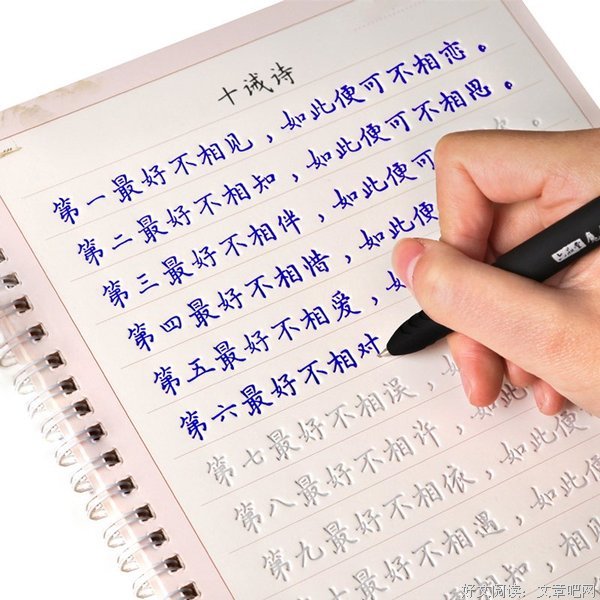 十诫诗
第一最好不相见，如此便可不相恋。
第二最好不相知，如此便可不相思。
第三最好不相伴，如此便可
第四最好不相惜，如此便
第五最好不相爱，如
第六最好不相对
第七最好不相误，如
第八最好不相许，如此
第九最好不相依，如此便
第十最好不相遇，如此便
相知，相见
好文阅读：文章吧网